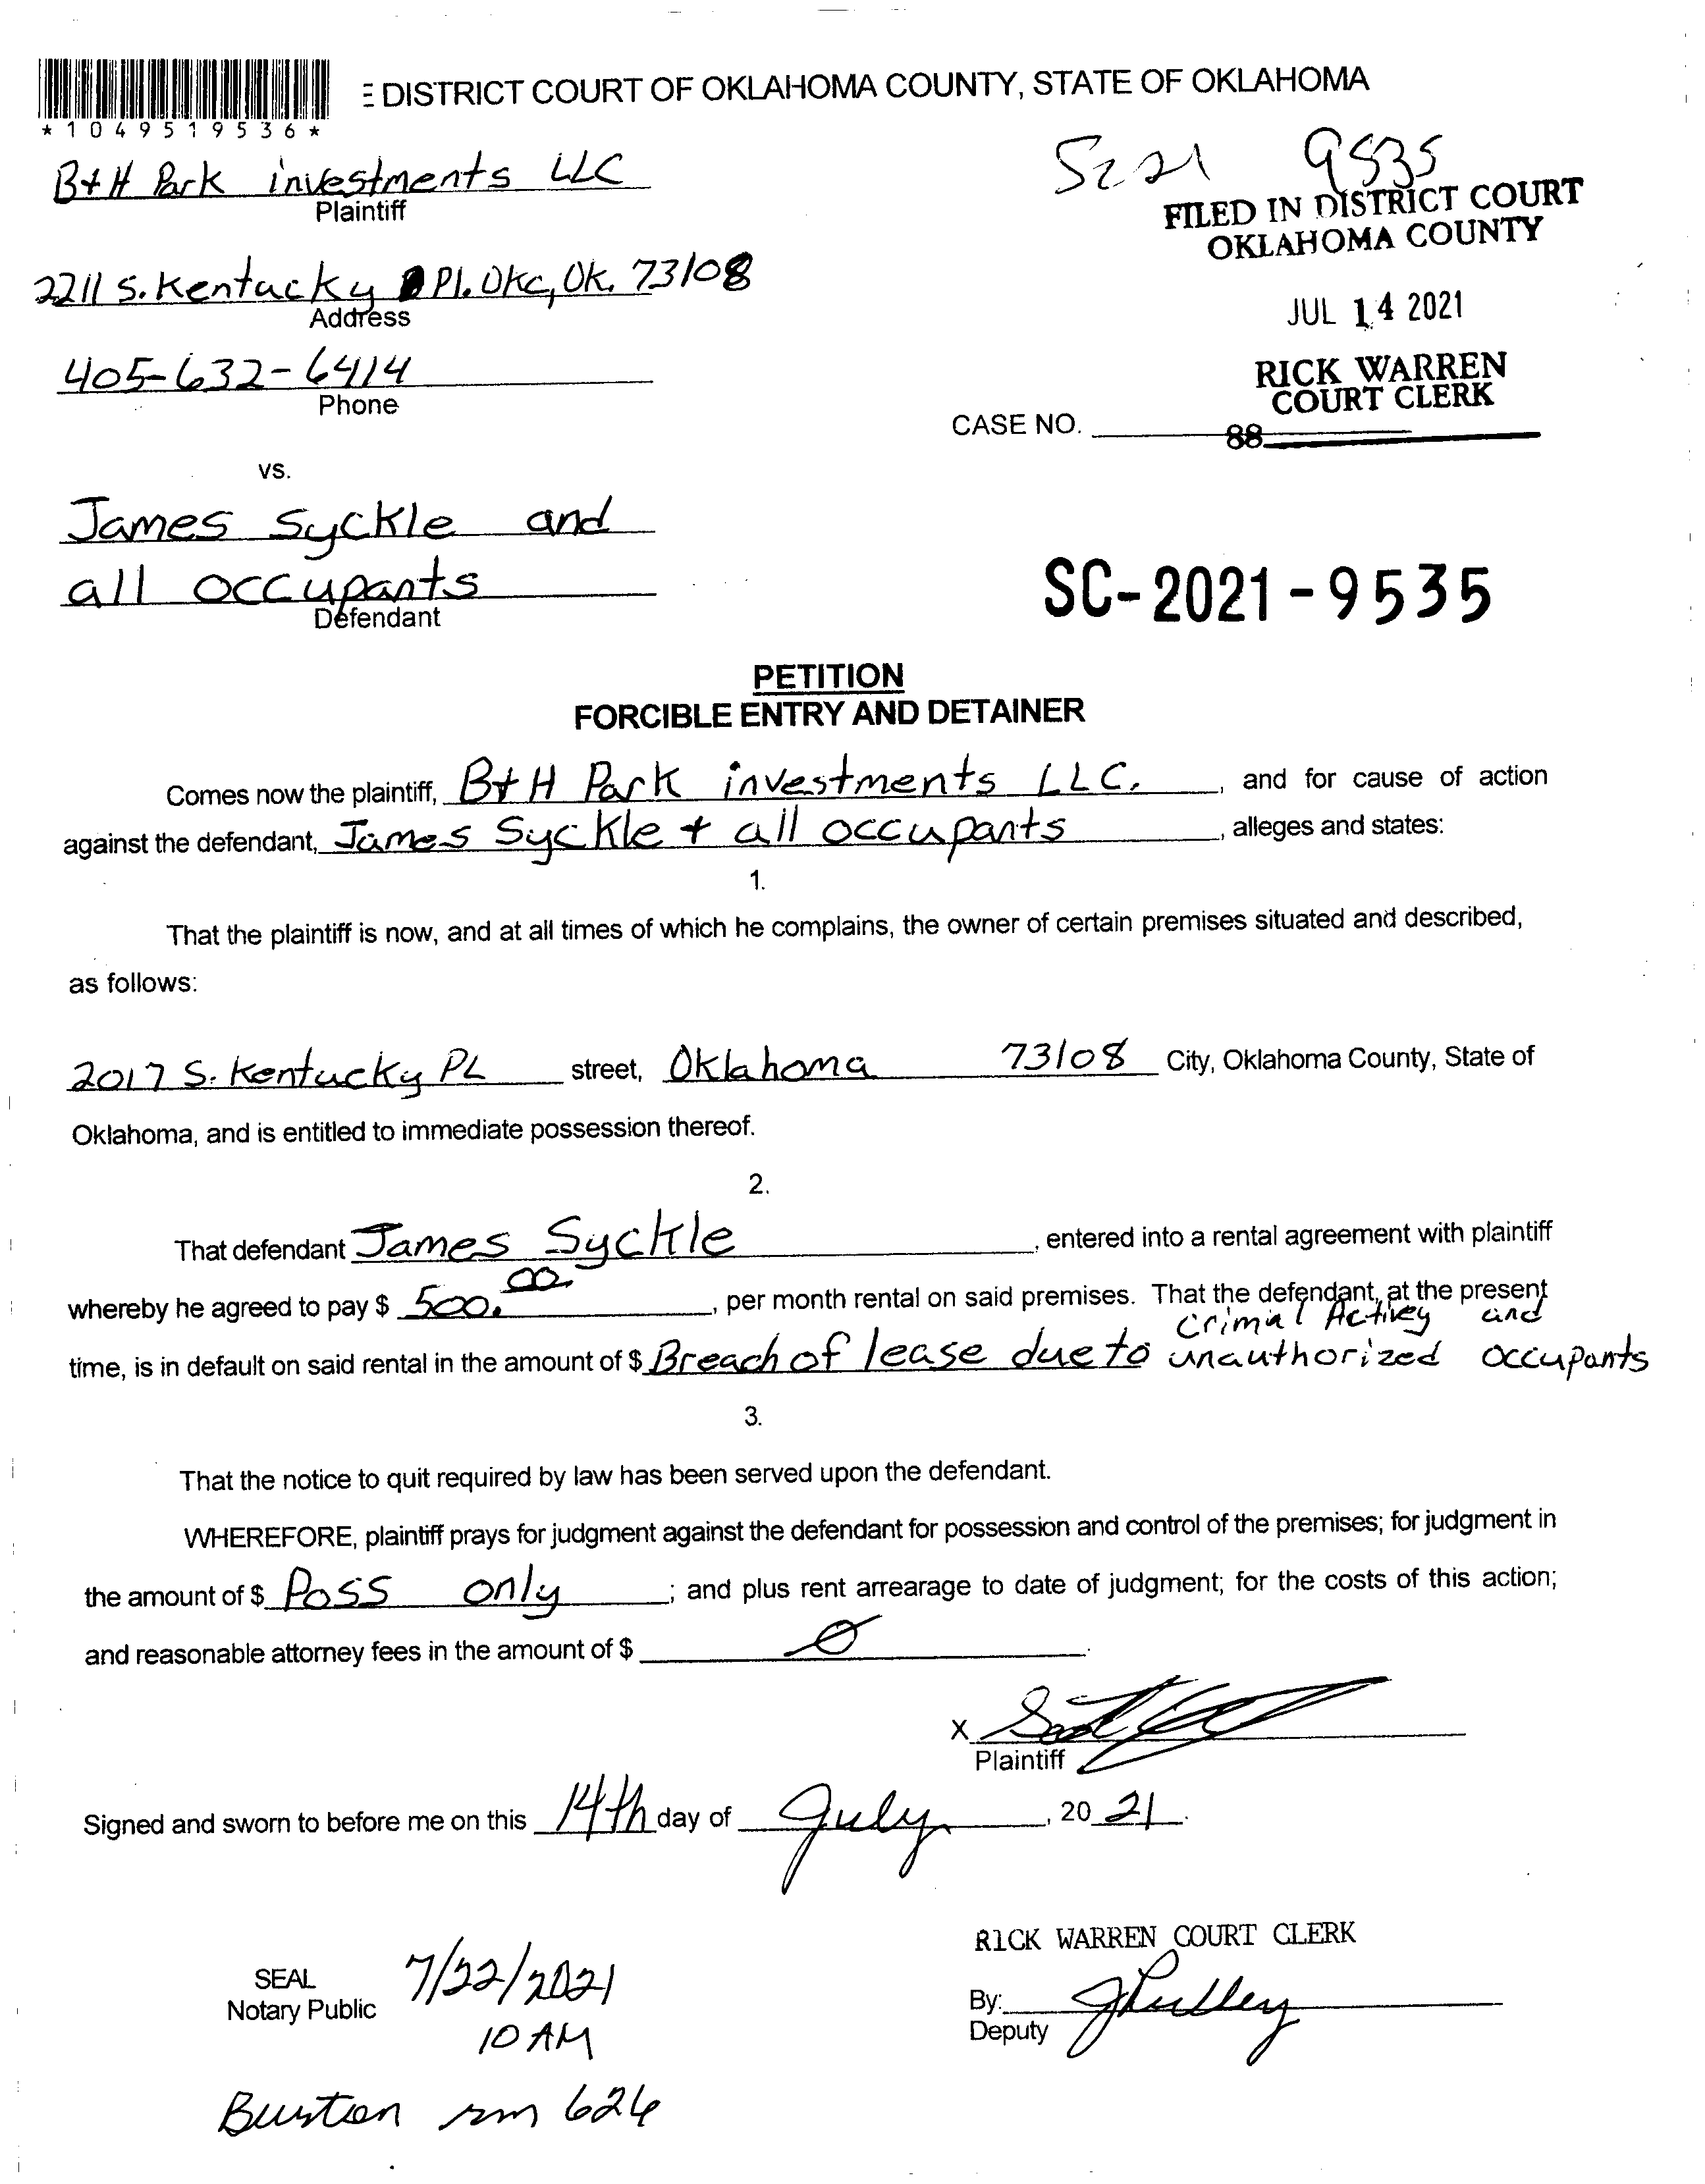 DISTRICT COURT OF OKLAHOMA COUNTY, STATE OF OKLAHOMA
*1049519536*
B+H Park investments LLC
Plaintiff
SC 21 9535
FILED IN DISTRICT COURT
OKLAHOMA COUNTY
2211 S. Kentucky Pl. Okc, Ok. 73108
Address
JUL 14 2021
405-632-6414
Phone
RICK WARREN
COURT CLERK
CASE NO.
88
vs.
James Syckle and
all occupants
Defendant
SC-2021-9535
PETITION
FORCIBLE ENTRY AND DETAINER
Comes now the plaintiff, B+H Park investments LLC. , and for cause of action
against the defendant, James Syckle + all occupants , alleges and states:
1.
That the plaintiff is now, and at all times of which he complains, the owner of certain premises situated and described,
as follows:
2017 S. Kentucky PL street, Oklahoma 73108 City, Oklahoma County, State of
Oklahoma, and is entitled to immediate possession thereof.
2.
That defendant James Syckle , entered into a rental agreement with plaintiff
whereby he agreed to pay $ 500.00 , per month rental on said premises. That the defendant, at the present
Crimial Activey and
time, is in default on said rental in the amount of $ Breach of lease due to unauthorized occupants
3.
That the notice to quit required by law has been served upon the defendant.
WHEREFORE, plaintiff prays for judgment against the defendant for possession and control of the premises; for judgment in
the amount of $ Poss only ; and plus rent arrearage to date of judgment; for the costs of this action;
and reasonable attorney fees in the amount of $ Ø .
X
Plaintiff
Signed and sworn to before me on this 14th day of July , 20 21 .
RICK WARREN COURT CLERK
SEAL
Notary Public
7/22/2021
10 AM
By:
Deputy
rm 626